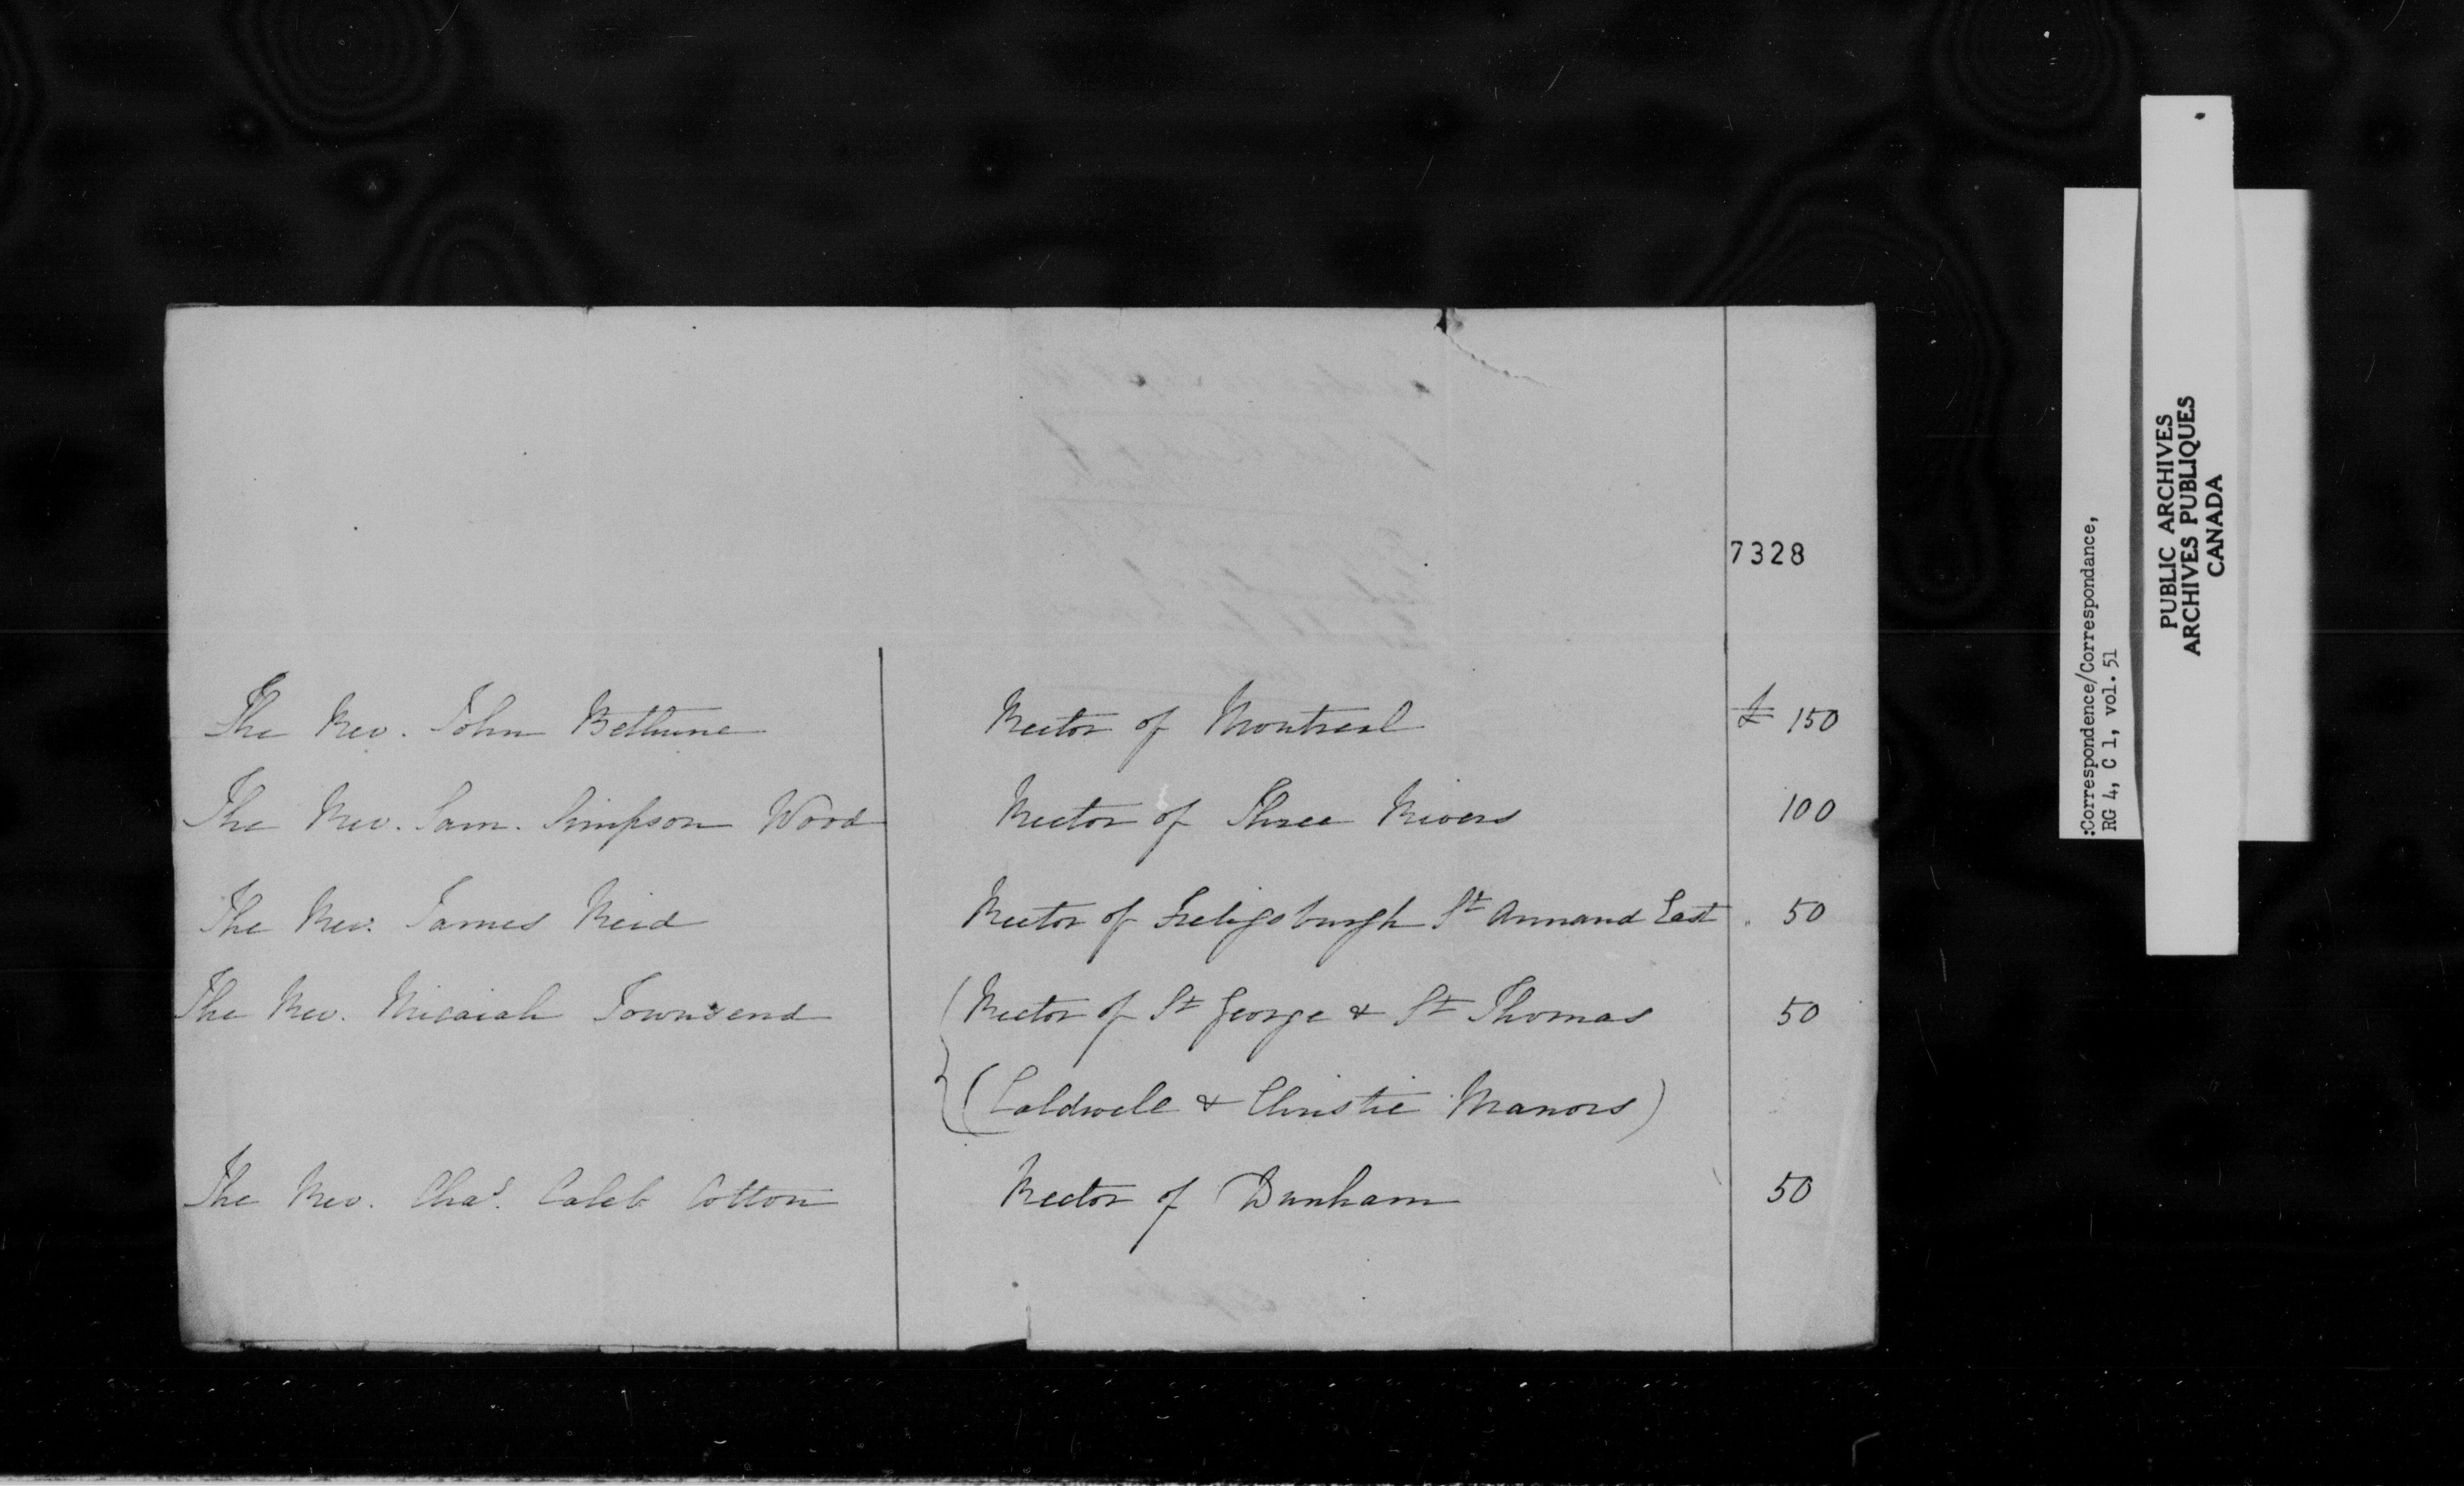 7328
The Rev. John Bethune Rector of Montreal £ 150
The Rev. Sam. Simpson Wood Rector of Three Rivers 100
The Rev. James Reid Rector of Freligsburgh St Armand East . 50
The Rev. Micaiah Townsend Rector of St George & St Thomas 50
(Caldwell & Christie Manors)
The Rev. Chas. Caleb Cotton Rector of Dunham 50
:Correspondence/Correspondance,
RG 4, C 1, vol. 51
PUBLIC ARCHIVES
ARCHIVES PUBLIQUES
CANADA